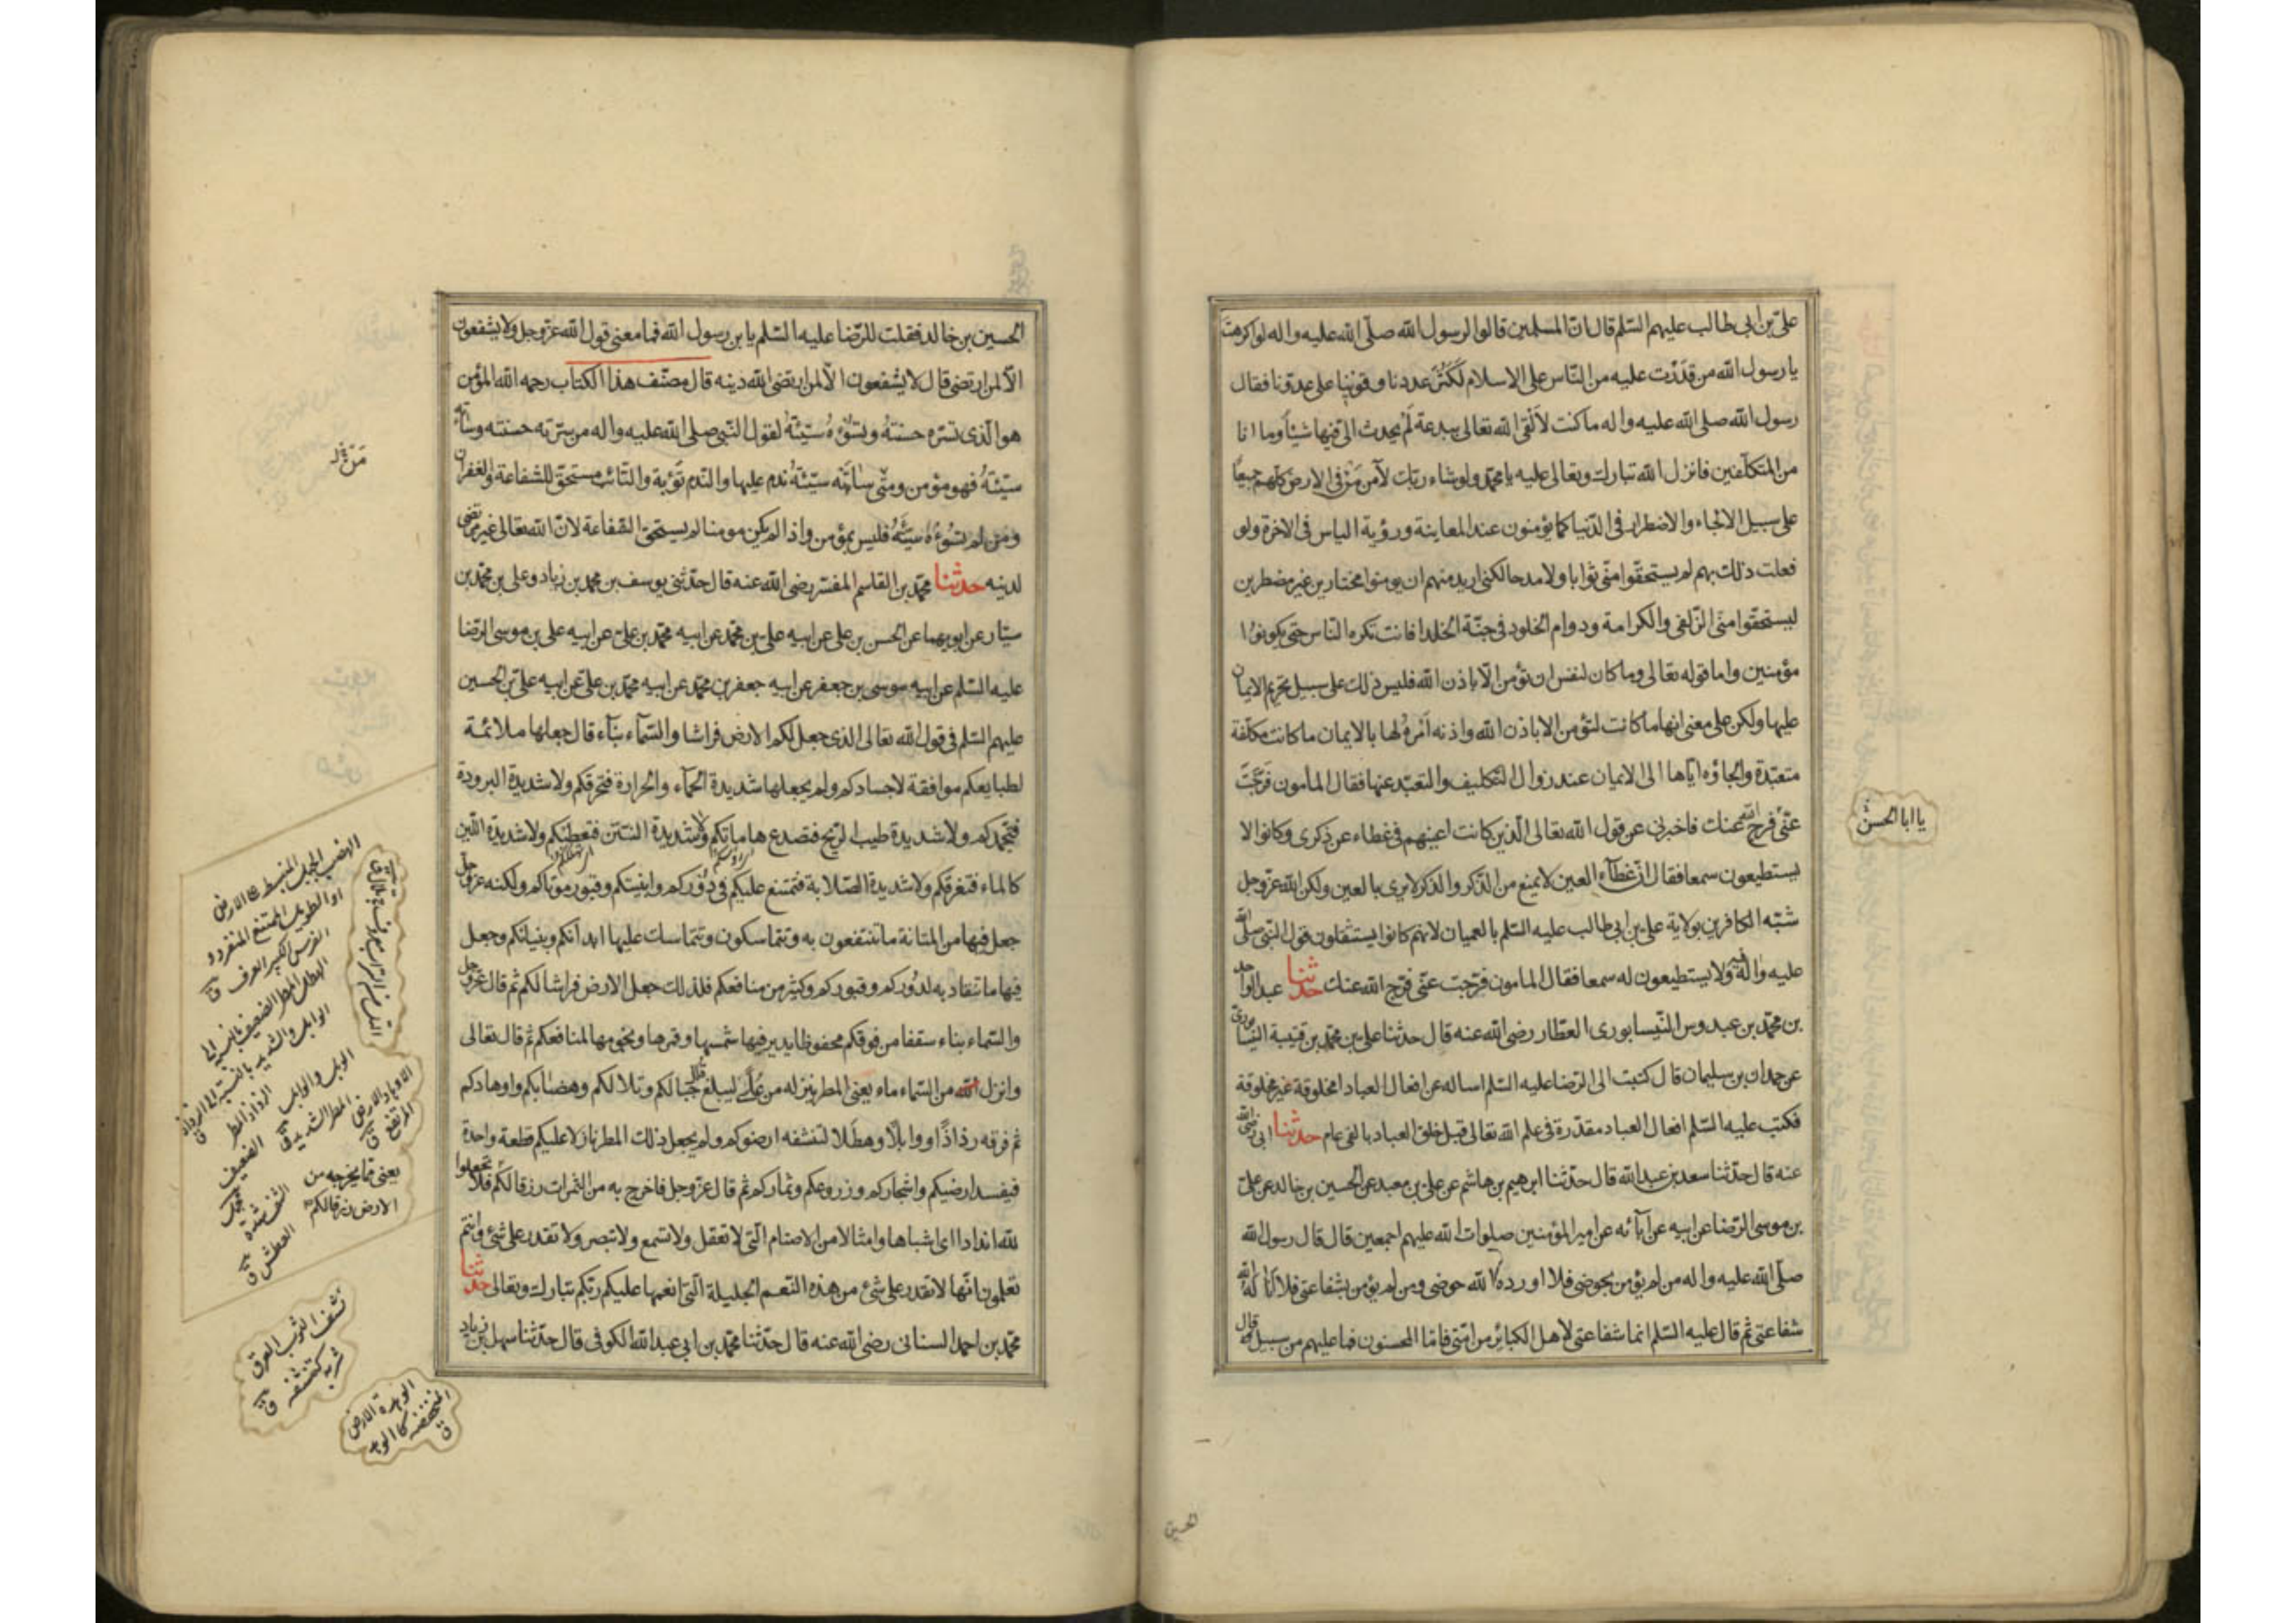 علي بن ابي طالب عليهم السّلم قال انّ المسلمين قالوا لرسول الله صلّى الله عليه واله لو اكرهت
يا رسول الله من قدَرْت عليه من النّاس على الاسلام لكَثُر عددنا وقوينا على عدوّنا فقال
رسول الله صلى الله عليه واله ما كنت لاَلْقى الله تعالى ببدعة لَم يحدث الىّ فيها شيئا وما انا
من المتكلّفين فانزل الله تبارك وتعالى عليه يا محمّد ولو شاء ربّك لآمن مَنْ فى الارض كلّهم جميعًا
على سبيل الالجاء والاضطرار فى الدّنيا كما يؤمنون عند المعاينة ورؤية الباس فى الاخرة ولو
فعلت ذلك بهم لم يستحقّوا منّى ثوابا ولا مدحا لكنّى اريد منهم ان يومنوا مختارين غير مضطرين
ليستحقّوا منى الزّلفى والكرامة ودوام الخلود فى جنّة الخلد افانت تكره النّاس حتى يكونوُا
مؤمنين واما قوله تعالى وما كان لنفس ان تؤمن الّا باذن الله فليس ذلك على سبيل تحريم الايمان
عليها ولكن على معنى انها ما كانت لتؤمن الا باذن الله واذنه اَمْره لها بالايمان ما كانت مكلّفة
متعبّدة والجاؤه ايّاها الى الايمان عند زوال التّكليف والتعبّد عنها فقال المأمون فرّجتَ
عنّى فرج الله عنك فاخبرنى عن قول الله تعالى الّذين كانت اعينهم فى غطاء عن ذكرى وكانوا لا
يا ابا الحسن
يستطيعون سمعا فقال انّ غطآء العين لا يمنع من الذّكر والذكر لا يرى بالعين ولكن الله عزّ وجل
شبّه الكافرين بولاية على بن ابى طالب عليه السّلم بالعميان لانهم كانوا يستثقلون قول النّبى صلّى الله
عليه واله فيه ولا يستطيعون له سمعا فقال المامون فرّجت عنّى فرّج الله عنك حدثنا عبد الواحد
بن محمّد بن عبدوس النّيسابورى العطّار رضى الله عنه قال حدثنا على بن محمّد بن قتيبة النيسابورى
عن حمدان بن سليمان قال كتبت الى الرّضا عليه السّلم اساله عن افعال العباد امخلوقة غير مخلوقة
فكتب عليه السّلم افعال العباد مقدّرة فى علم الله تعالى قبل خلق العباد بالفى عام حدثنا ابى رضى الله
عنه قال حدّثنا سعد بن عبد الله قال حدّثنا ابرهيم بن هاشم عن على بن معبد عن الحسين بن خالد عن على
بن موسى الرّضا عن ابيه عن آبائه عن امير المؤمنين صلوات الله عليهم اجمعين قال قال رسول الله
صلّى الله عليه واله من لم يؤمن بحوضى فلا اورده الله حوضى ومن لم يؤمن بشفاعتى فلا اناله الله
شفاعتى ثم قال عليه السّلم انما شفاعتى لاهل الكبائر من امّتى فامّا المحسنون فما عليهم من سبيل قال
الحسين
الحسين بن خالد فقلت للرّضا عليه السّلم يا بن رسول الله فما معنى قول الله عزّ وجل ولا يشفعون
الّا لمن ارتضى قال لا يشفعون الّا لمن ارتضى الله دينه قال مصنّف هذا الكتاب رحمه الله المؤمن
هو الّذى تسّره حسنتهُ وتسوُءه سيّئتهُ لقول النّبى صلى الله عليه واله من سرّته حسنته وساءته
سيّئتهُ فهو مؤمن ومتى ساءَته سيّئتهُ ندم عليها والنّدم تَوْبة والتّائب مستحقّ للشفاعة والغفران
ومن لم تسُوءْهُ سيّئتُهُ فليس بمؤمن واذا لم يكن مومنا لم يستحقّ الشّفاعة لانّ الله تعالى غير مرتضى
لدينه حدثنا محمّد بن القاسم المفسّر رضى الله عنه قال حدّثنى يوسف بن محمد بن زياد وعلى بن محمّد بن
سيّار عن ابويهما عن الحسن بن على عن ابيه على بن محمّد عن ابيه محمّد بن علىّ عن ابيه على بن موسى الرّضا
عليه السّلم عن ابيه موسى بن جعفر عن ابيه جعفر بن محمّد عن ابيه محمّد بن علىّ عن ابيه علىّ بن الحسين
عليهم السّلم فى قول الله تعالى الذى جعل لكم الارض فراشا والسّمآء بنآء قال جعلها ملائمة
لطبايعكم موافقة لاجسادكم ولم يجعلها شديدة الحمآء والحرارة فتحرقكم ولا شديدة البرودة
فتجمدكم ولا شديدة طيب الرّيح فتصدع هاماتكم ولا شديدة النّتن فتعطبكم ولا شديدة اللّين
كالماء فتغرقكم ولا شديدة الصّلابة فتمتنع عليكم فى دُوركم وابنيتكم وقبور موتاكم ولكنه عزّ وجل
جعل فيها من المتانة ما تنتفعون به وتتماسكون وتتماسك عليها ابدانكم وبنيانكم وجعل
فيها ما تنقاد به لدُوركم وقبوركم وكثير من منافعكم فلذلك جعل الارض فراشا لكم ثم قال عزّ وجل
والسّماء بناء سقفا من فوقكم محفوظا يدير فيها شمسها وقمرها ونجومها لمنافعكم ثم قال تعالى
وانزل الله من السّماء ماء يعنى المطر ينزله من عُلًى ليبلغ قلل جبالكم وتلالكم وهضابكم واوهادكم
ثم فرقه رذاذًا ووابلًا وهطَلا لتنشفه ارضوكم ولم يجعل ذلك المطر نازلا عليكم قطعة واحدة
فيفسد ارضيكم واشجاركم وزروعكم وثماركم ثم قال عزّ وجل فاخرج به من الثمرات رزقا لكم فلا تجعلوا
لله اندادا اى اشباها وامثالا من الاصنام الّتى لا تعقل ولا تسمع ولا تبصر ولا تقدر على شئ وانتم
تعلمون انّها لا تقدر على شئ من هذه النّعم الجليلة الّتى انعمها عليكم ربّكم تبارك وتعالى حدثنا
محمّد بن احمد السنانى رضى الله عنه قال حدّثنا محمّد بن ابى عبد الله الكوفى قال حدّثنا سهل بن زياد
الهضب الجبل المنبسط على الارض
او الطويل الممتنع المنفرد و
الفرس الكبير العرق ق
الهطل المطر الضعيف
الرذاذ المطر
الضعيف
يعنى مما يخرجه من
الارض رزقا لكم
نشف الثوب العرق
شربه كتنشفه ق
الوهدة الارض
المنخفضة كالوهد
ق